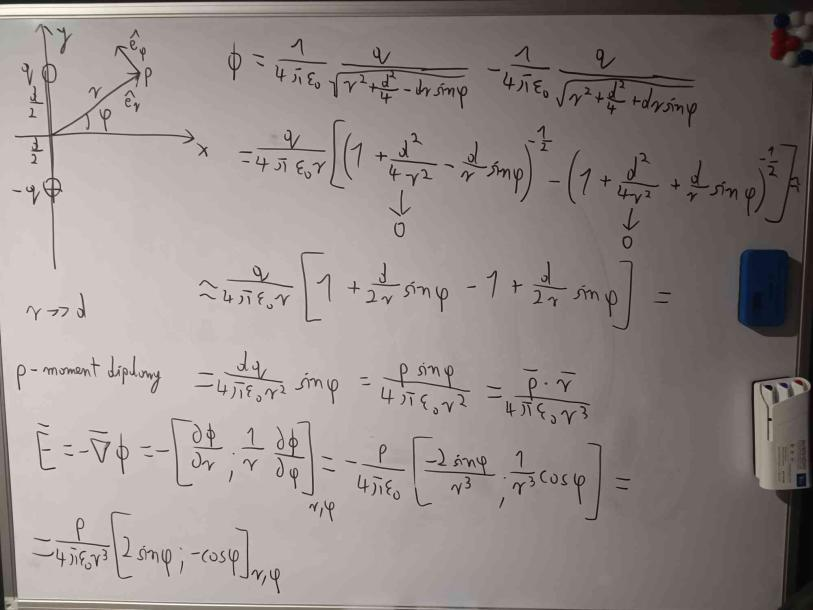 y
ê_φ
q
P
d/2
r
ê_r
φ
x
d/2
-q
ϕ = 1/(4πε₀) q/√(r² + d²/4 - dr sinφ) - 1/(4πε₀) q/√(r² + d²/4 + dr sinφ)
= q/(4πε₀r) [(1 + d²/(4r²) - d/r sinφ)^(-1/2) - (1 + d²/(4r²) + d/r sinφ)^(-1/2)] =
↓ 0 ↓ 0
r >> d
≈ q/(4πε₀r) [1 + d/(2r) sinφ - 1 + d/(2r) sinφ] =
p - moment dipolowy = dq/(4πε₀r²) sinφ = p sinφ/(4πε₀r²) = p̄ · r̄/(4πε₀r³)
Ē = -∇̄ϕ = -[∂ϕ/∂r ; 1/r ∂ϕ/∂φ]_r,φ = - p/(4πε₀) [-2 sinφ/r³ ; 1/r³ cosφ] =
= p/(4πε₀r³) [2 sinφ ; -cosφ]_r,φ